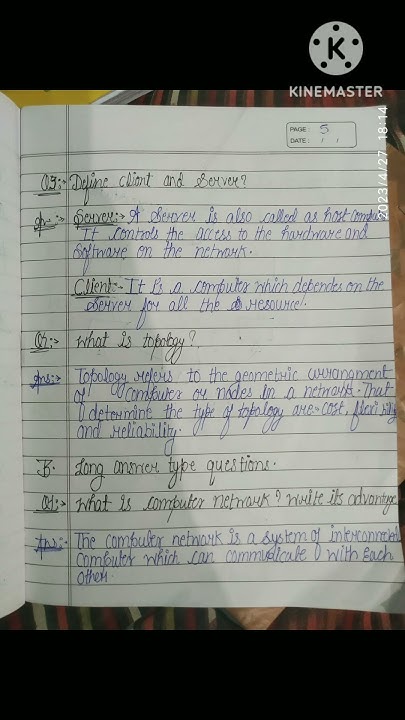 K
KINEMASTER
PAGE: 5
DATE: / /
2023/4/27 18:14
Q3:- Define client and Server?
Server:- A Server is also called as host comput
It controls the access to the hardware and
Software on the network.
Client:- It is a computer which dependes on the
Server for all the resource.
What is topology?
Ans:- Topology refers to the geometric arrangment
of computer or nodes in a network. That
determine the type of topology are- cost,
and reliability.
B. Long answer type questions.
Q1:- What is computer network? Write its advantage
Ans:- The computer network is a system of interconnec
computer which can commuicate with each
other.